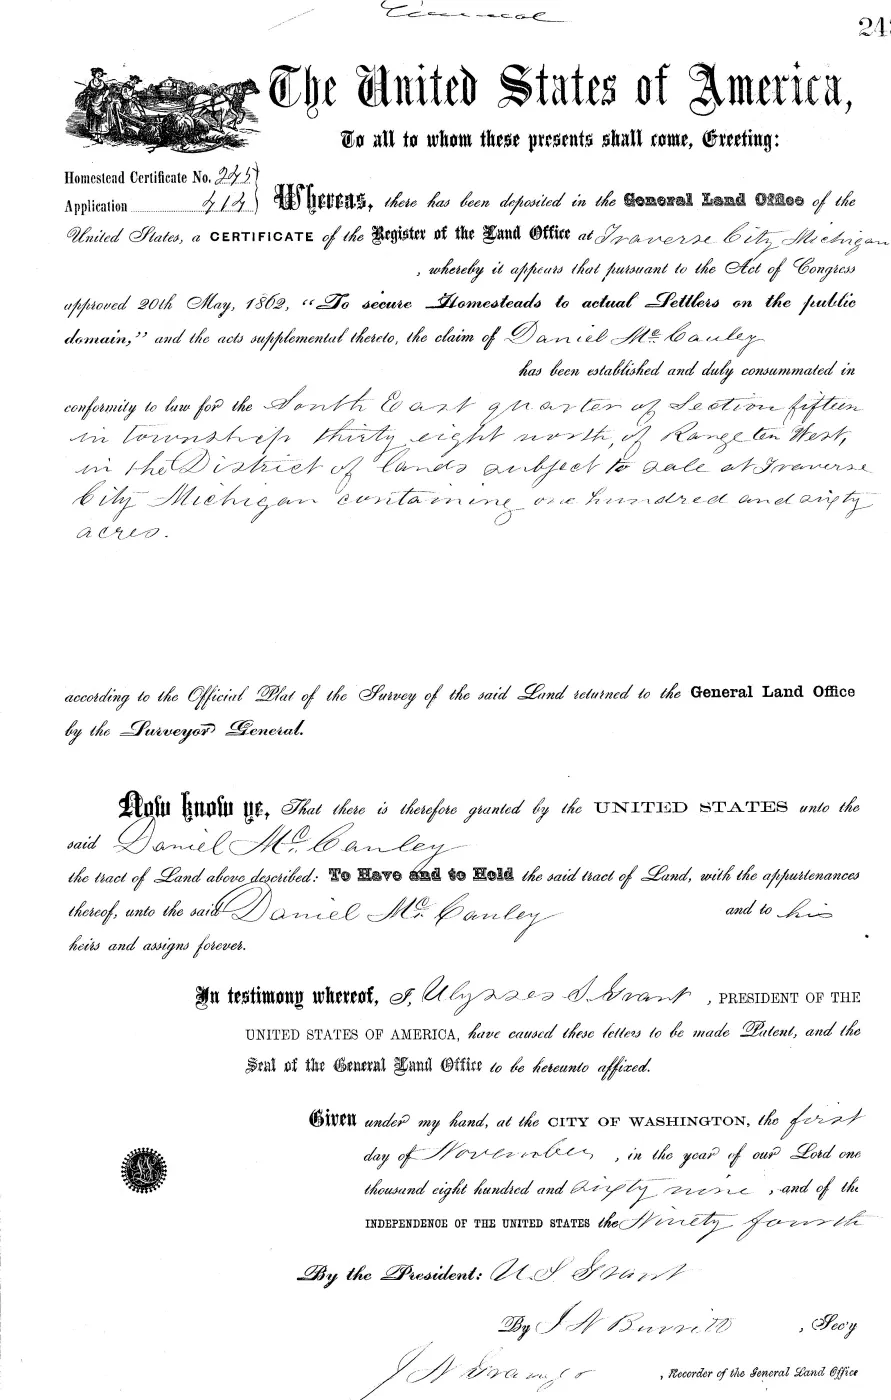 243
The United States of America,
To all to whom these presents shall come, Greeting:
Homestead Certificate No. 245
Application 414
Whereas, there has been deposited in the General Land Office of the
United States, a CERTIFICATE of the Register of the Land Office at Traverse City Michigan
, whereby it appears that pursuant to the Act of Congress
approved 20th May, 1862, “To secure Homesteads to actual Settlers on the public
domain,” and the acts supplemental thereto, the claim of Daniel McCauley
has been established and duly consummated in
conformity to law for the South East quarter of Section fifteen
in township thirty eight north, of Range ten West,
in the District of lands subject to sale at Traverse
City Michigan containing one hundred and sixty
acres.
according to the Official Plat of the Survey of the said Land returned to the General Land Office
by the Surveyor General.
Now know ye, That there is therefore granted by the UNITED STATES unto the
said Daniel McCauley
the tract of Land above described: To Have and to Hold the said tract of Land, with the appurtenances
thereof, unto the said Daniel McCauley and to his
heirs and assigns forever.
In testimony whereof, I, Ulysses S. Grant, PRESIDENT OF THE
UNITED STATES OF AMERICA, have caused these letters to be made Patent, and the
Seal of the General Land Office to be hereunto affixed.
Given under my hand, at the CITY OF WASHINGTON, the first
day of November, in the year of our Lord one
thousand eight hundred and sixty nine, and of the
INDEPENDENCE OF THE UNITED STATES the Ninety fourth
By the President: U. S. Grant
By J N , Sec'y
, Recorder of the General Land Office